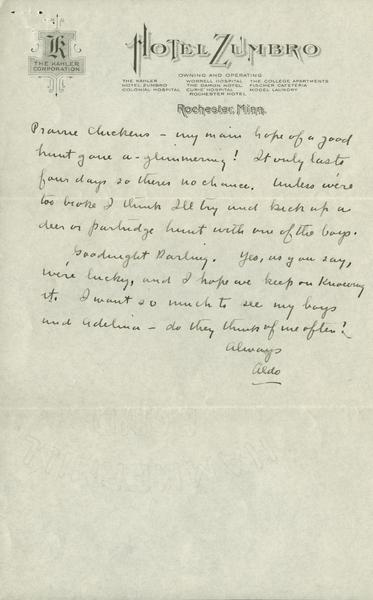 K
THE KAHLER
CORPORATION
HOTEL ZUMBRO
OWNING AND OPERATING
THE KAHLER WORRELL HOSPITAL THE COLLEGE APARTMENTS
HOTEL ZUMBRO THE DAMON HOTEL FISCHER CAFETERIA
COLONIAL HOSPITAL CURIE HOSPITAL MODEL LAUNDRY
ROCHESTER HOTEL
Rochester, Minn.
Prairie Chickens - my main hope of a good
hunt gone a-glimmering! It only lasts
four days so theres no chance. Unless we're
too broke I think I'll try and kick up a
deer or partridge hunt with one of the boys.
Goodnight Darling. Yes, as you say,
we're lucky, and I hope we keep on Knowing
it. I want so much to see my boys
and Adelina - do they think of me often?
Always
Aldo